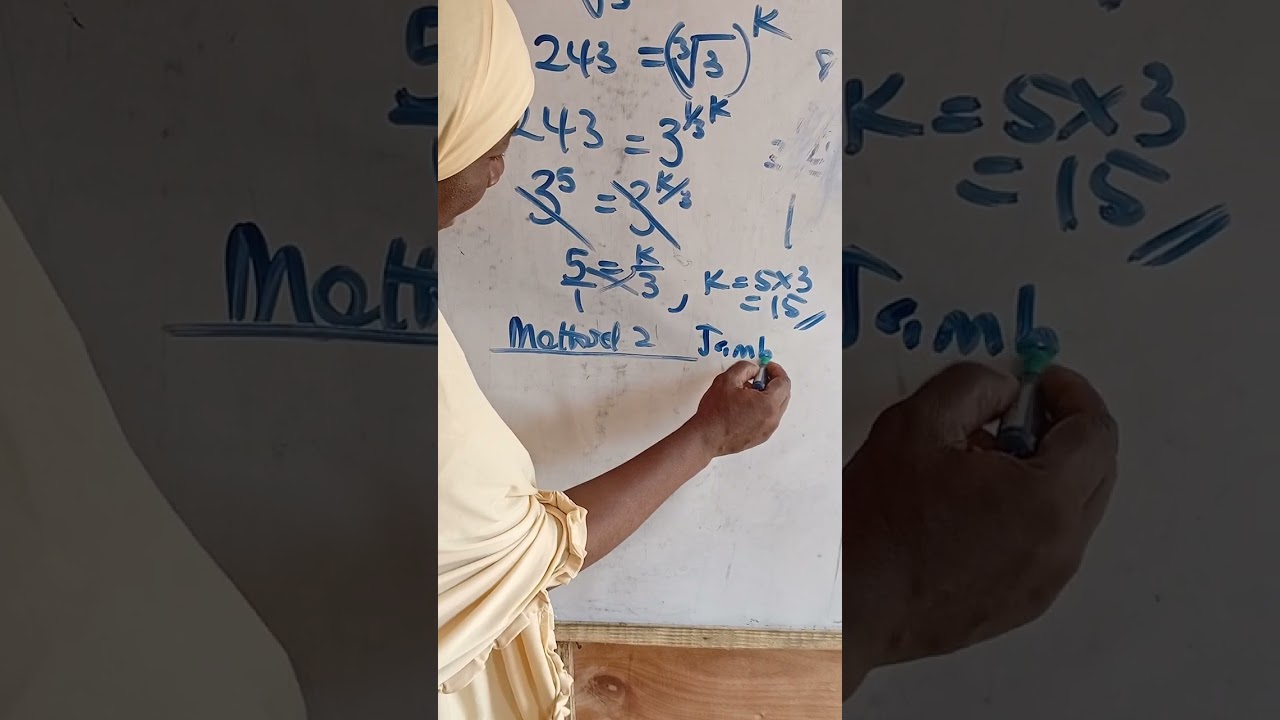 √3
243 = (∛3)^K
243 = 3^{1/3 K}
3^5 = 3^{K/3}
5/1 = K/3, K = 5×3
= 15
Method 2 Jamb